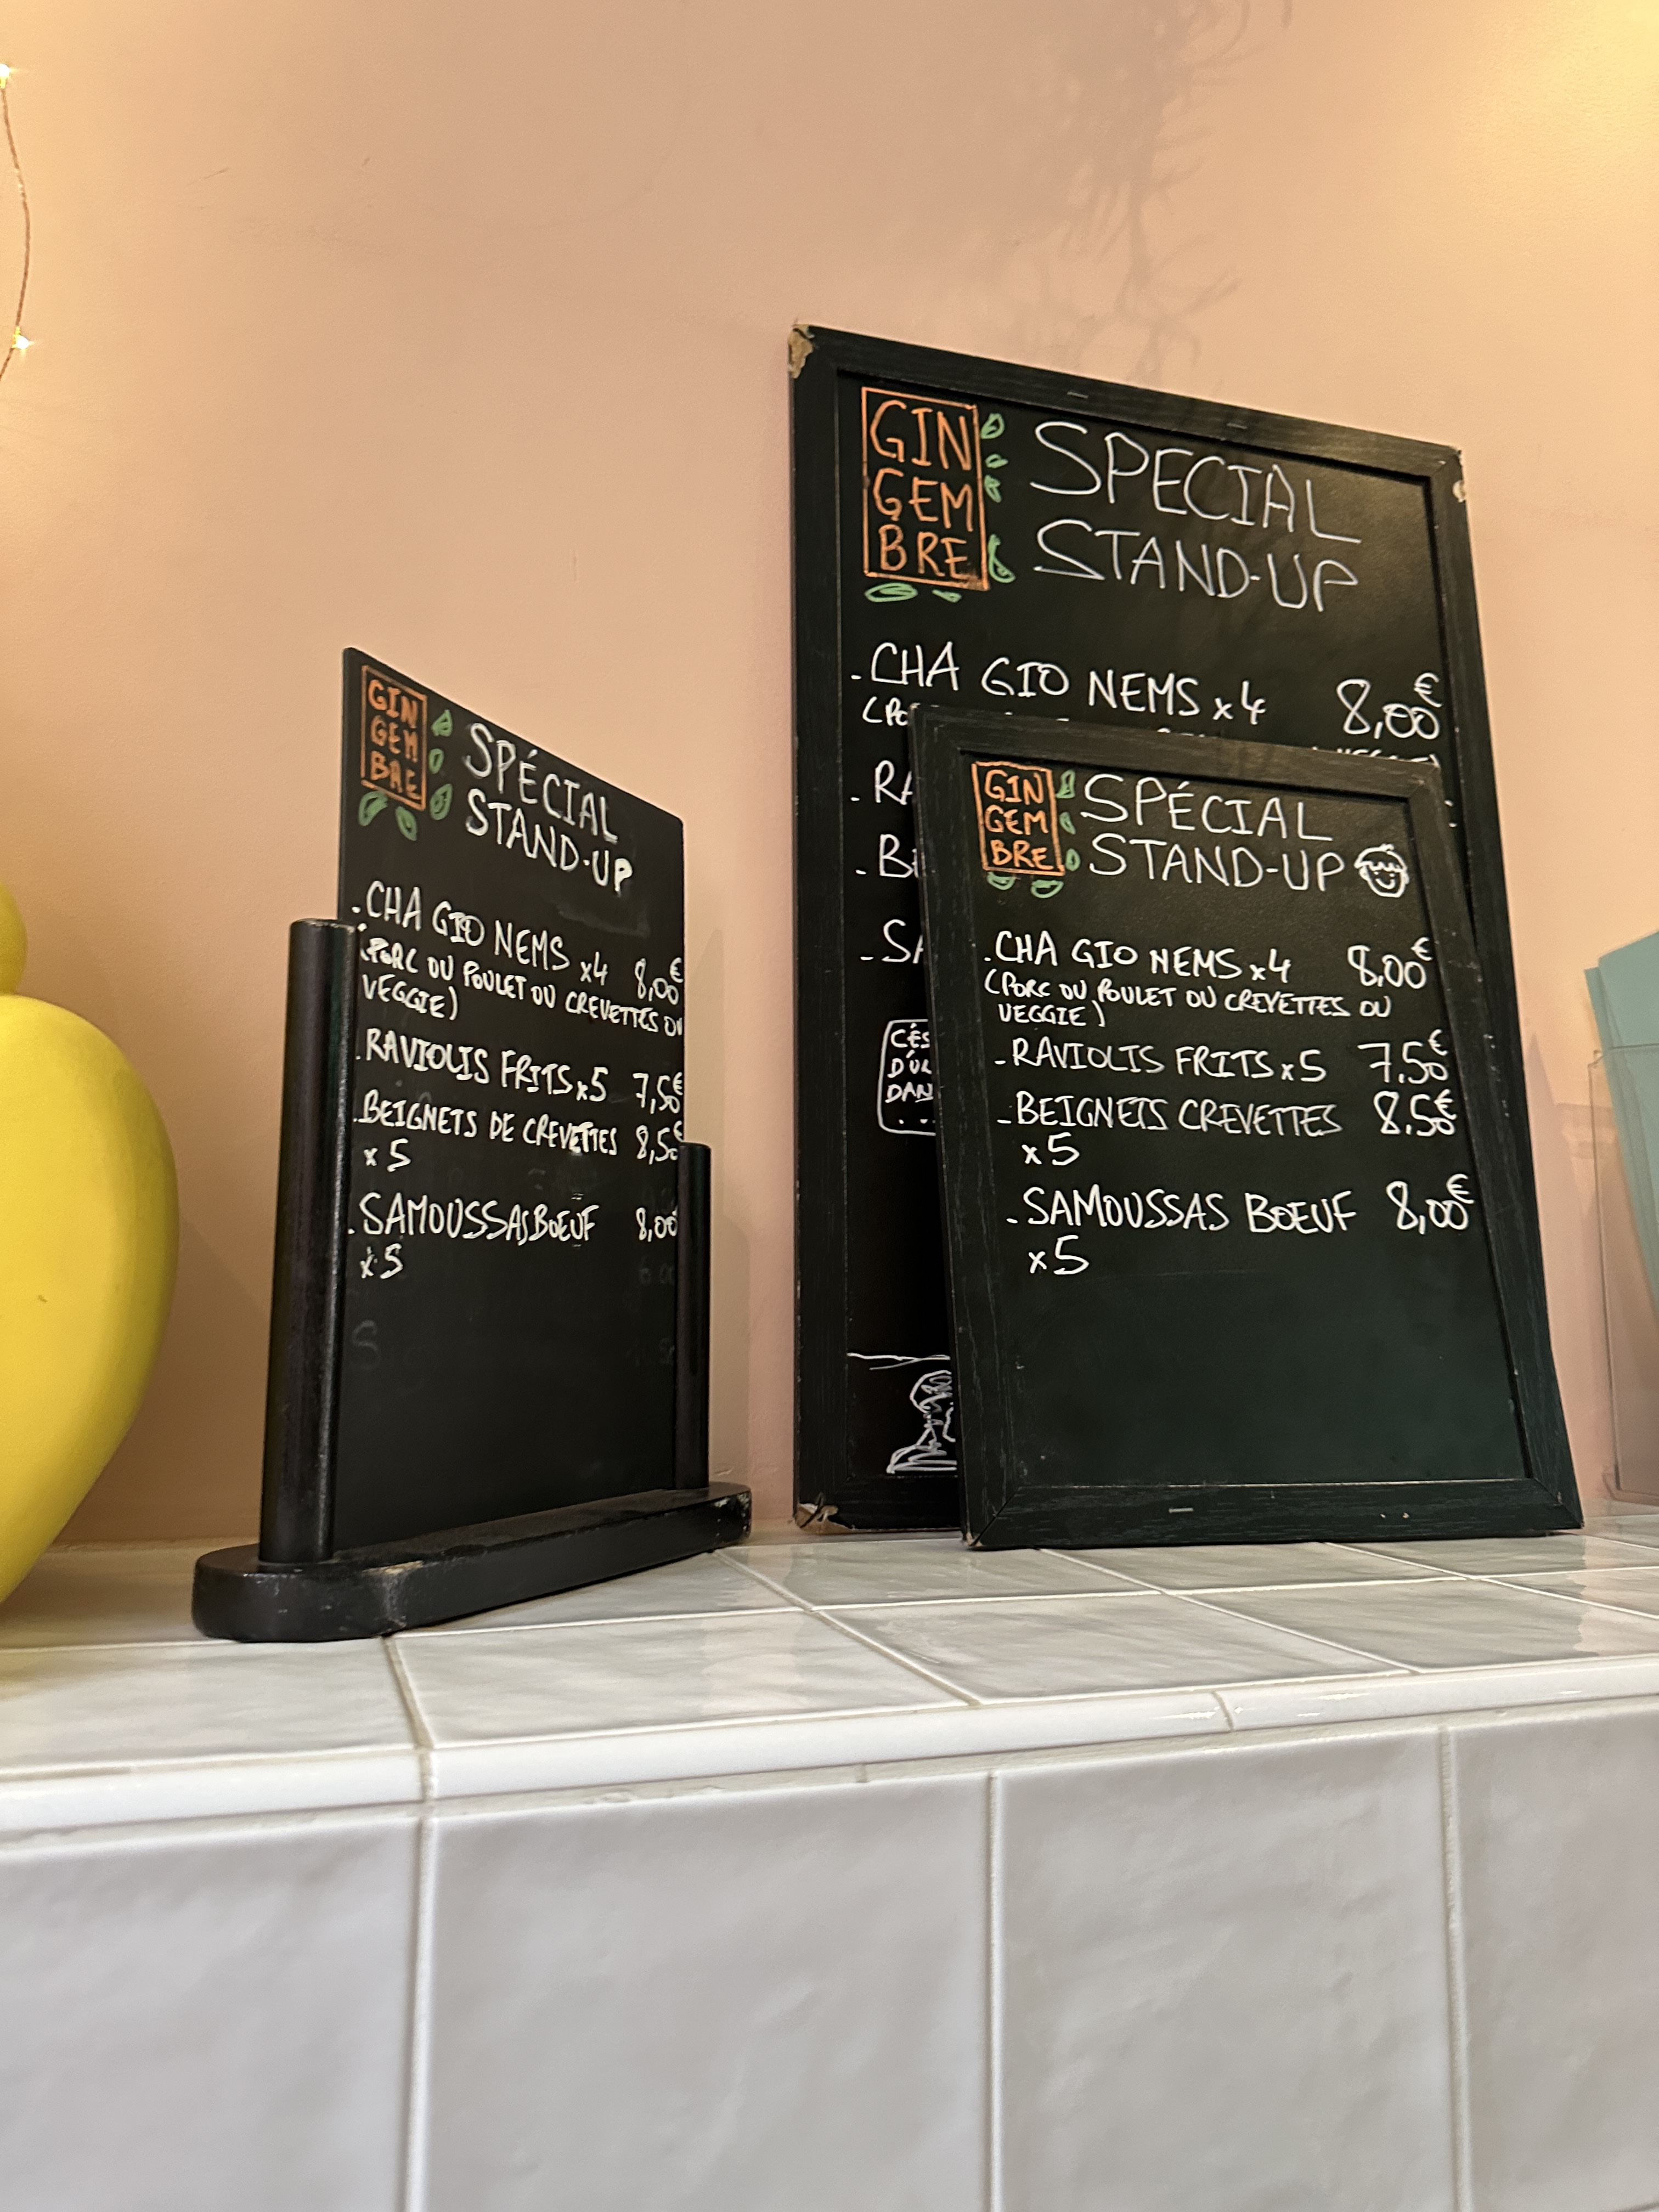 GIN
GEM
BRE
SPÉCIAL
STAND-UP
. CHA GIO NEMS x4 8,00€
(PORC OU POULET OU CREVETTES OU
VEGGIE)
. RAVIOLIS FRITS x5 7,50€
. BEIGNETS DE CREVETTES 8,50€
x5
. SAMOUSSAS BOEUF 8,00€
x5
GIN
GEM
BRE
SPECIAL
STAND-UP
. CHA GIO NEMS x4 8,00€
GIN
GEM
BRE
SPÉCIAL
STAND-UP
. CHA GIO NEMS x4 8,00€
(PORC OU POULET OU CREVETTES OU
VEGGIE)
- RAVIOLIS FRITS x5 7.50€
- BEIGNETS CREVETTES 8.50€
x5
- SAMOUSSAS BOEUF 8,00€
x5